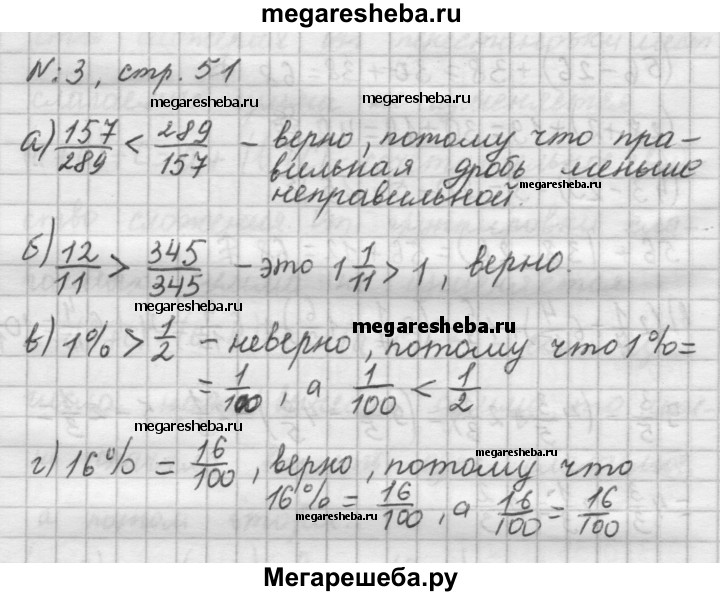 megaresheba.ru
N: 3, стр. 51
megaresheba.ru megaresheba.ru
а) 157/289 < 289/157 - верно, потому что пра-
вильная дробь меньше
megaresheba.ru
неправильной.
б) 12/11 > 345/345 - это 1 1/11 > 1, верно.
megaresheba.ru
megaresheba.ru
в) 1% > 1/2 - неверно, потому что 1% =
= 1/100, а 1/100 < 1/2
megaresheba.ru
megaresheba.ru
г) 16% = 16/100, верно, потому что
16% = 16/100, а 16/100 = 16/100
megaresheba.ru megaresheba.ru
Мегарешеба.ру